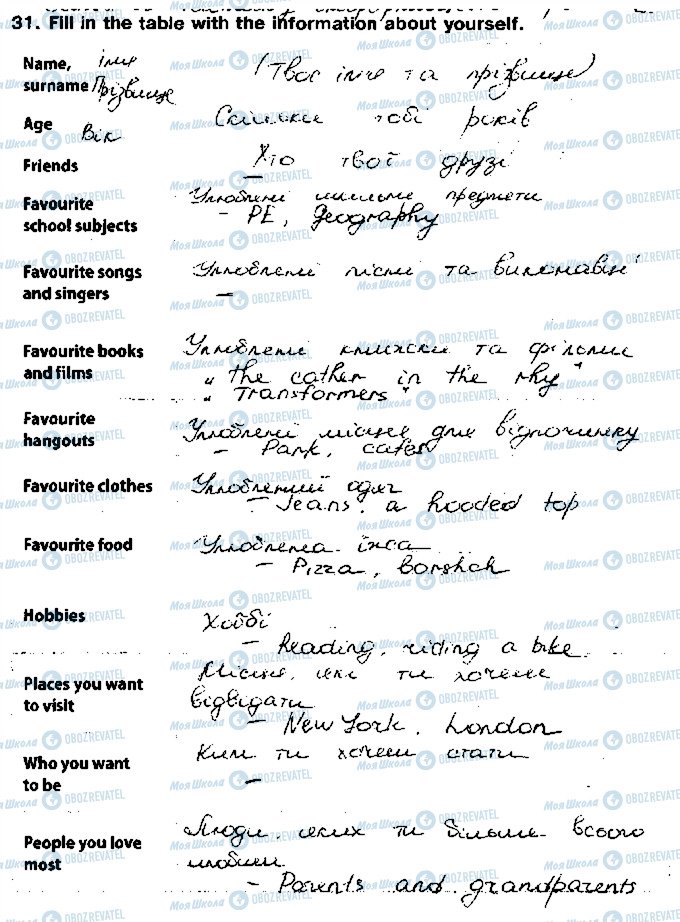 31. Fill in the table with the information about yourself.
Name, імя (Твоє імʼя та прізвище)
surname Прізвище
Age Вік Скільки тобі років
Friends Хто твої друзі
–
Favourite Улюблені шкільні предмети
school subjects – PE, geography
Favourite songs Улюблені пісні та виконавці
and singers –
Favourite books Улюблені книжки та фільми
and films "the cather in the rhy"
"Transformers"
Favourite
hangouts Улюблені місця для відпочинку
– Park, cafes
Favourite clothes Улюблений одяг
– Jeans, a hooded top
Favourite food Улюблена їжа
– Pizza, borshch
Hobbies Хоббі
– Reading, riding a bike
Places you want Місця, які ти хочеш
to visit відвідати
– New York, London
Who you want Ким ти хочеш стати
to be –
People you love Люди, яких ти більше всього
most любиш
– Parents and grandparents
Моя Школа OBOZREVATEL